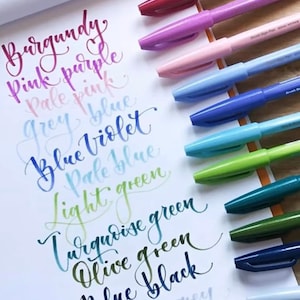 Burgundy
Pink purple
Pale pink
Grey blue
Blue violet
Pale blue
Light green
Turquoise green
Olive green
Blue Black